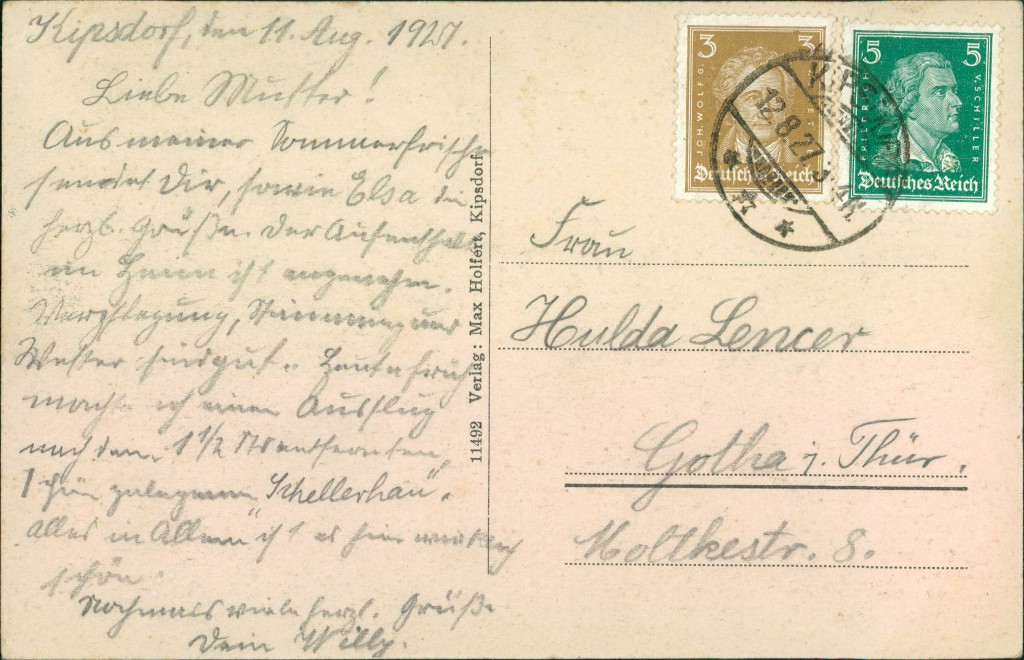 Kipsdorf, den 11. Aug. 1927.
Liebe Mutter!
Aus meiner Sommerfrische
sendet Dir, sowie Elsa die
herzl. Grüße. Der Aufenthalt
im Heim ist angenehm.
Verpflegung, Stimmung und
Wetter sind gut. Heute früh
machte ich einen Ausflug
nach dem 1 1/2 entfernten,
schön gelegenen "Schellerhau".
Alles in Allem ist es hier wirklich
schön.
Nochmals viele herzl. Grüße
Dein Willy.
11492 Verlag: Max Holfert, Kipsdorf.
3 3
JOH. WOLFG.
Deutsches Reich
5 5
FRIEDR. V. SCHILLER
Deutsches Reich
KIPSDORF
12.8.27
Frau
Hulda Lencer
Gotha i. Thür.
Moltkestr. 8.